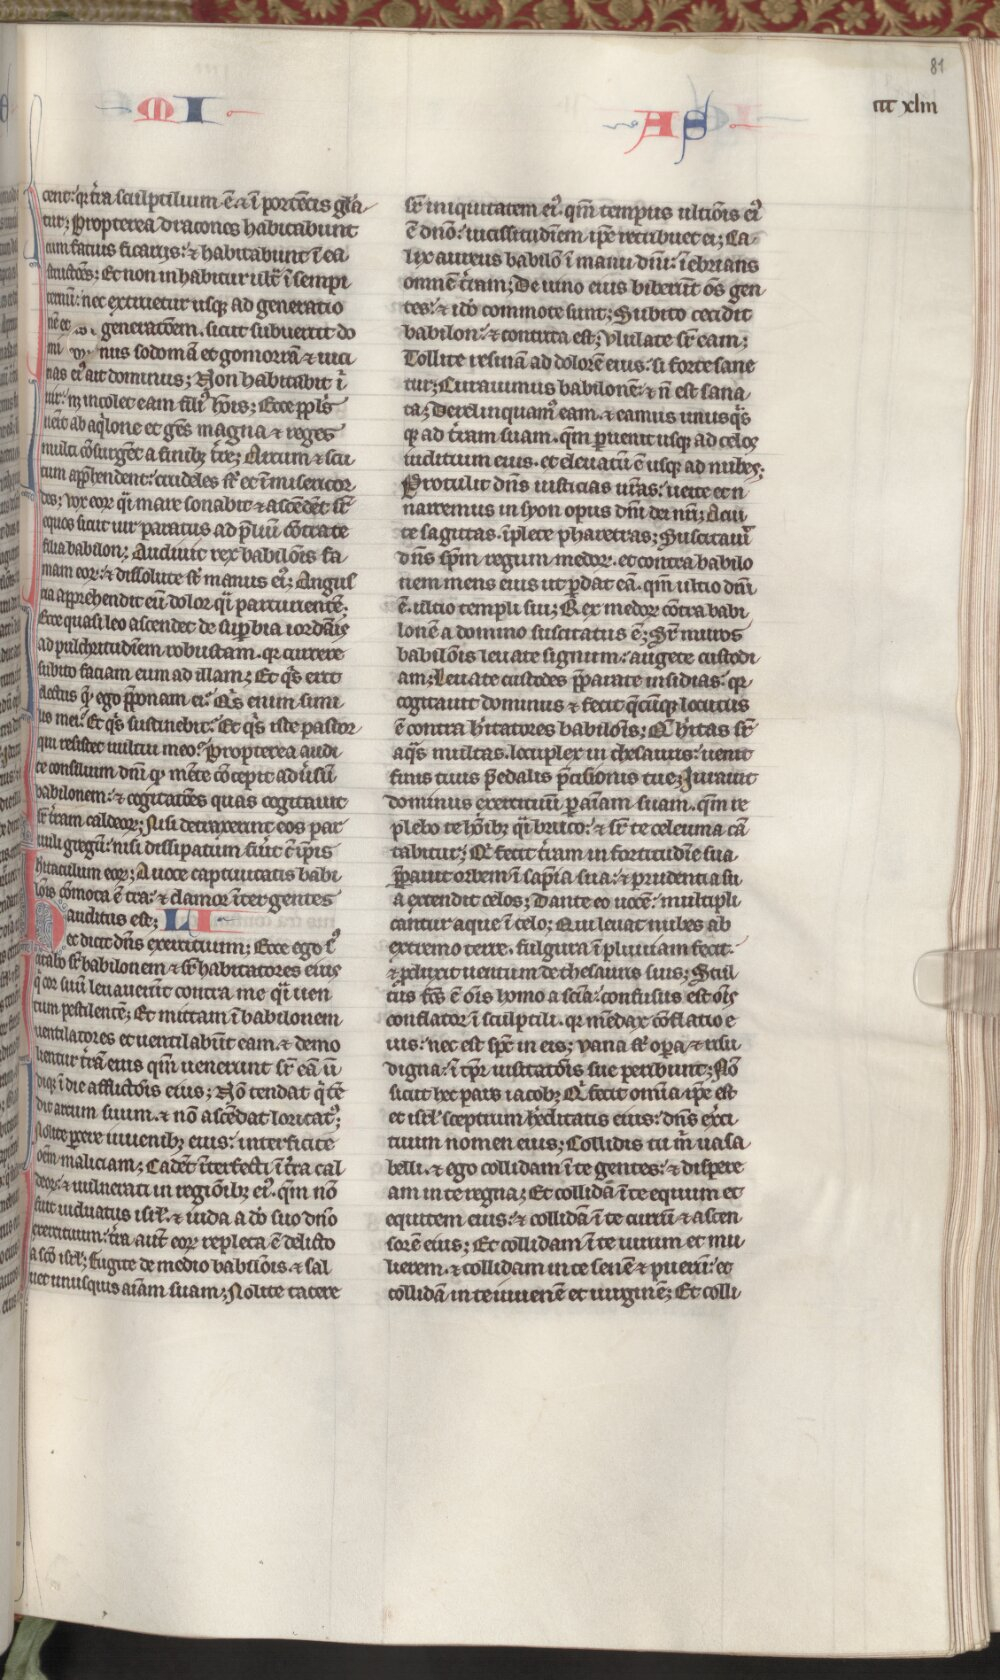 MI
AS
81
cēt xliii
cent: qr t̄ra sculptilium ē & ī portētis glā
tur; Propterea dracones habitabunt
cum faunis ficariis: & habitabunt ī ea
structōes; Et non inhabitur ult̄ ī sempi
ternū: nec extruetur usq ad generatio
nē et generatōem. sicut subuertit do
mi nus sodomā et gomorrā & uici
nas ei᷒ ait dominus; Non habitabit ī
uir: nͥ incolet eam fili᷒ hōis; Ecce ppl̄s
uēit ab aq̇lone et gēs magna & reges
multi cōsurgēt a finibȝ t̄re; Arcum & scu
tum appͥhendent: crudeles sͭ et īmisericor
des; vox eoꝝ qͣi mare sonabit & ascēdēt sͬ
equos sicut uir paratus ad p̄lium cōtra te
filia babilon; Audiuit rex babilōis fa
mam eoꝝ: & dissolute sͭ manus ei᷒; Angus
tia apprehendit eū dolor qͣi parturientē;
Ecce quasi leo ascendet de suꝑbia iordāis
ad pulchritudiēm robustam. qr currere
subito faciam eum ad illam; Et qͥs erit
electus qͤ ego p̄ponam ei: Qͥs enim simi
lis mei: Et qͥs sustinebit: Et qͥs iste pastor
qui resistet uultui meo: Propterea audi
te consilium dnī qḋ mēte cōcepit aduͥsū
babilonem: & cogitatōes quas cogitauit
sͬ t̄ram caldeoꝝ; Nisi detraxerint eos par
uuli gregū: nisi dissipatum fuīt c̄ ip̄is
hītaculum eoꝝ; A uoce captiuitatis babi
lōis cōmota ē t̄ra: & clamor īter gentes
auditus est; LI
ec dicit dn̄s exercituum: Ecce ego s᷒
citabo sͬ babilonem & sͬ habitatores eius
q̇ cor suū leuauerūt contra me qͣi uen
tum pestilentē; Et mittam ī babilonem
uentilatores et uentilabūt eam. & demo
lientur t̄rā eius qm̄ uenerunt sͬ eā ū
diqȝ ī die afflictōis eius; Nō tendat q̇ tē
dit arcum suum. & nō ascēdat loricat᷒;
Nolite parcere iuuenibȝ eius: interficite
oēm maliciam; Cadēt īterfecti ī t̄ra cal
deoꝝ: & uulnerati in regiōibȝ ei᷒. qm̄ nō
fuit uiduatus isrl̄. & iuda a dō suo dn̄o
exercituum: t̄ra aūt eoꝝ repleta ē delicto
a scō isrl̄; Fugite de medio babilōis. & sal
uet unusquis aīam suam; Nolite tacere
sͬ iniquitatem ei᷒. qm̄ tempus ultiōis ei᷒
ē dn̄o: uicissitudiēm ip̄e retribuet ei; Ca
lix aureus babilō ī manu dnī: īebrians
omnē t̄ram; De uino eius biberūt ōs gen
tes: & idō commote sunt; Subito cecidit
babilon: & contrita est; Vlulate sͬ eam;
Tollite resinā ad dolorē eius: si forte sane
tur; Curauimus babilonē: & n̄ est sana
ta; Derelinquam᷒ eam. & eamus unusqͥs
qȝ ad t̄ram suam. qm̄ ꝑuenit usqȝ ad celos
iudicium eius. et eleuatū ē usqȝ ad nubes;
Protulit dn̄s iusticias nr̄as: uēite et n
narremus in syon opus dnī dei nrī; Acui
te sagittas. īplete pharetras; Suscitauͭ
dn̄s sp̄m regum medoꝝ. et contra babilo
nem mens eius ut ꝑdat eā. qm̄ ultio dnī
ē. ultio templi sui; Rex medoꝝ cōtra babi
lonē a domino suscitatus ē; Sͬ muros
babilōis leuate signum: augete custodi
am; Leuate custodes p̄parate insidias: qr
cogitauit dominus & fecit qͨcūqȝ locutus
ē contra hͥtatores babilōis; Q̄ hͥtas sͬ
aq̇s multas. locuplex in thesauris: uenit
finis tuus p̄edalis p̄cisionis tue; Iurauit
dominus exercituū ꝑ aīam suam. qm̄ re
plebo te hōibȝ qͣi bruco: & sͬ te celeuma cā
tabitur; Qͥ fecit t̄ram in fortitudīe sua
p̄parauit orbem ī sapīa sua: & prudentia su
a extendit celos; Dante eo uocē: multipli
cantur aque ī celo; Qui leuat nubes ab
extremo terre. fulgura ī pluuiam fecit:
& ꝓduxit uentum de thesauris suis; Stul
tus fc̄s ē oīs homo a scīa: confusus est oīs
conflator ī sculptili. qr mēdax cōflatio e
ius: nec est spc̄ in eis; vana sͭ oꝑa. & risu
digna: ī tp̄r uisitatōis sue peribunt; Nō
sicut hec pars iacob; Qͥ fecit omīa ip̄e est
et isrl̄ sceptrum hēditatis eius: dn̄s ex̄ci
tuum nomen eius; Collidis tu m̄ uasa
belli. & ego collidam ī te gentes: & disperd
am in te regna; Et collidā ī te equum et
equitem eius: & collidā ī te currū & ascen
sorē eius; Et collidam ī te uirum et mu
lierem. & collidam in te senē & puerū: et
collidā in te iuuenē et uirginē; Et colli